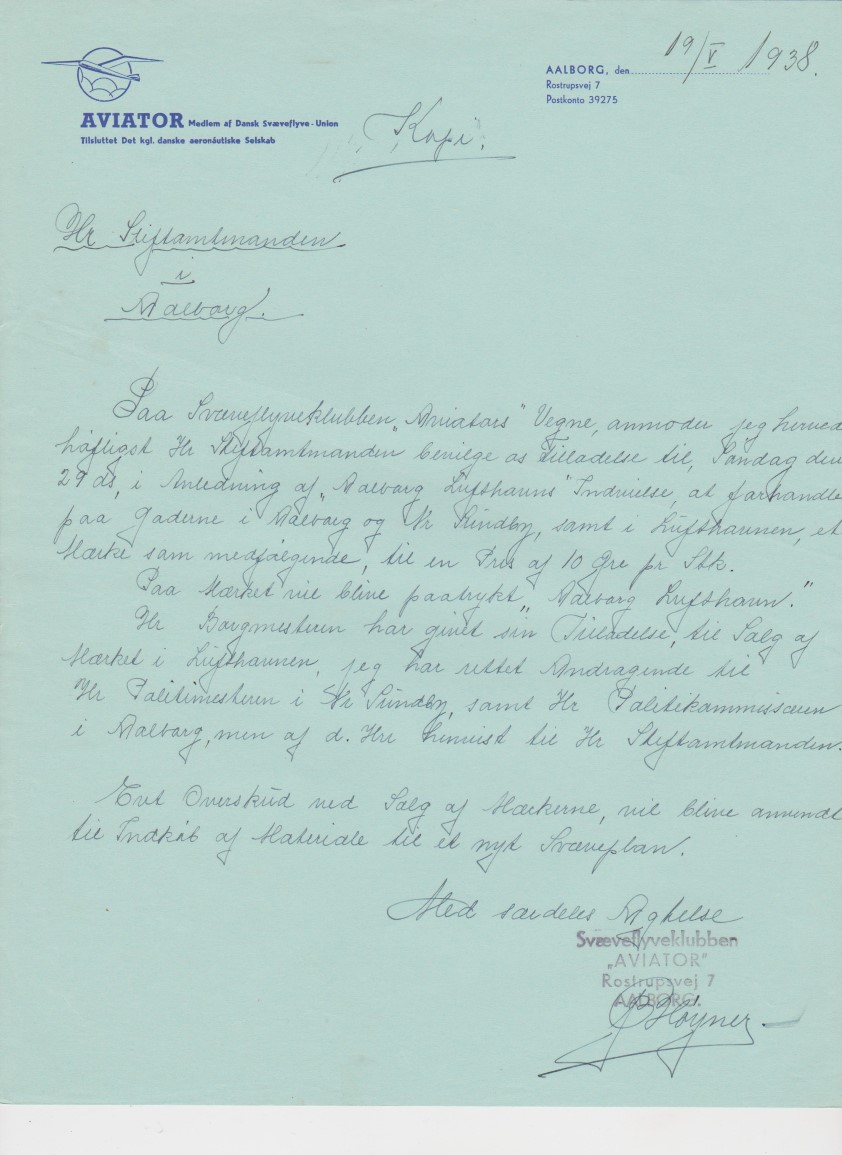 AALBORG, den 19/V 1938.
Rostrupsvej 7
Postkonto 39275
AVIATOR Medlem af Dansk Svæveflyve-Union
Tilsluttet Det kgl. danske aeronautiske Selskab
Kopi.
Hr Stiftamtmanden
i
Aalborg.
Paa Svæveflyveklubben „Aviators" Vegne, anmoder jeg herved
høfligst Hr Stiftamtmanden bevilge os Tilladelse til, Søndag den
29 ds, i Anledning af „Aalborg Lufthavns" Indvielse, at forhandle
paa Gaderne i Aalborg og Nr Sundby, samt i Lufthavnen, et
Mærke som medfølgende, til en Pris af 10 Øre pr Stk.
Paa Mærket vil blive paatrykt „Aalborg Lufthavn."
Hr Borgmesteren har givet sin Tilladelse, til Salg af
Mærket i Lufthavnen, jeg har rettet Andragende til
Hr Politimesteren i Nr Sundby, samt Hr Politikommissæren
i Aalborg, men af d. Hrr henvist til Hr Stiftamtmanden.
Evt Overskud ved Salg af Mærkerne, vil blive anvendt
til Indkøb af Materiale til et nyt Svæveplan.
Med særdeles Agtelse
Svæveflyveklubben
„AVIATOR"
Rostrupsvej 7
AALBORG.